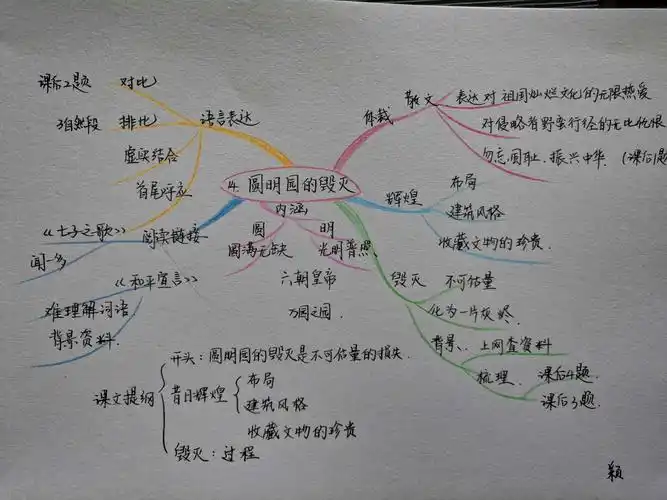 4. 圆明园的毁灭
体裁
散文 表达对祖国灿烂文化的无限热爱
对侵略者野蛮行径的无比仇恨
勿忘国耻、振兴中华. (课后1题
辉煌
布局
建筑风格
收藏文物的珍贵.
毁灭 不可估量
化为一片灰烬.
背景、上网查资料
梳理. 课后4题.
课后3题.
内涵
圆 明
圆满无缺 光明普照
六朝皇帝
万园之园.
语言表达
课后2题 对比
3自然段 排比
虚实结合
首尾呼应
阅读链接
《七子之歌》
闻一多
《和平宣言》
难理解词语
背景资料.
课文提纲
开头:圆明园的毁灭是不可估量的损失.
昔日辉煌
布局
建筑风格
收藏文物的珍贵
毁灭:过程
颖